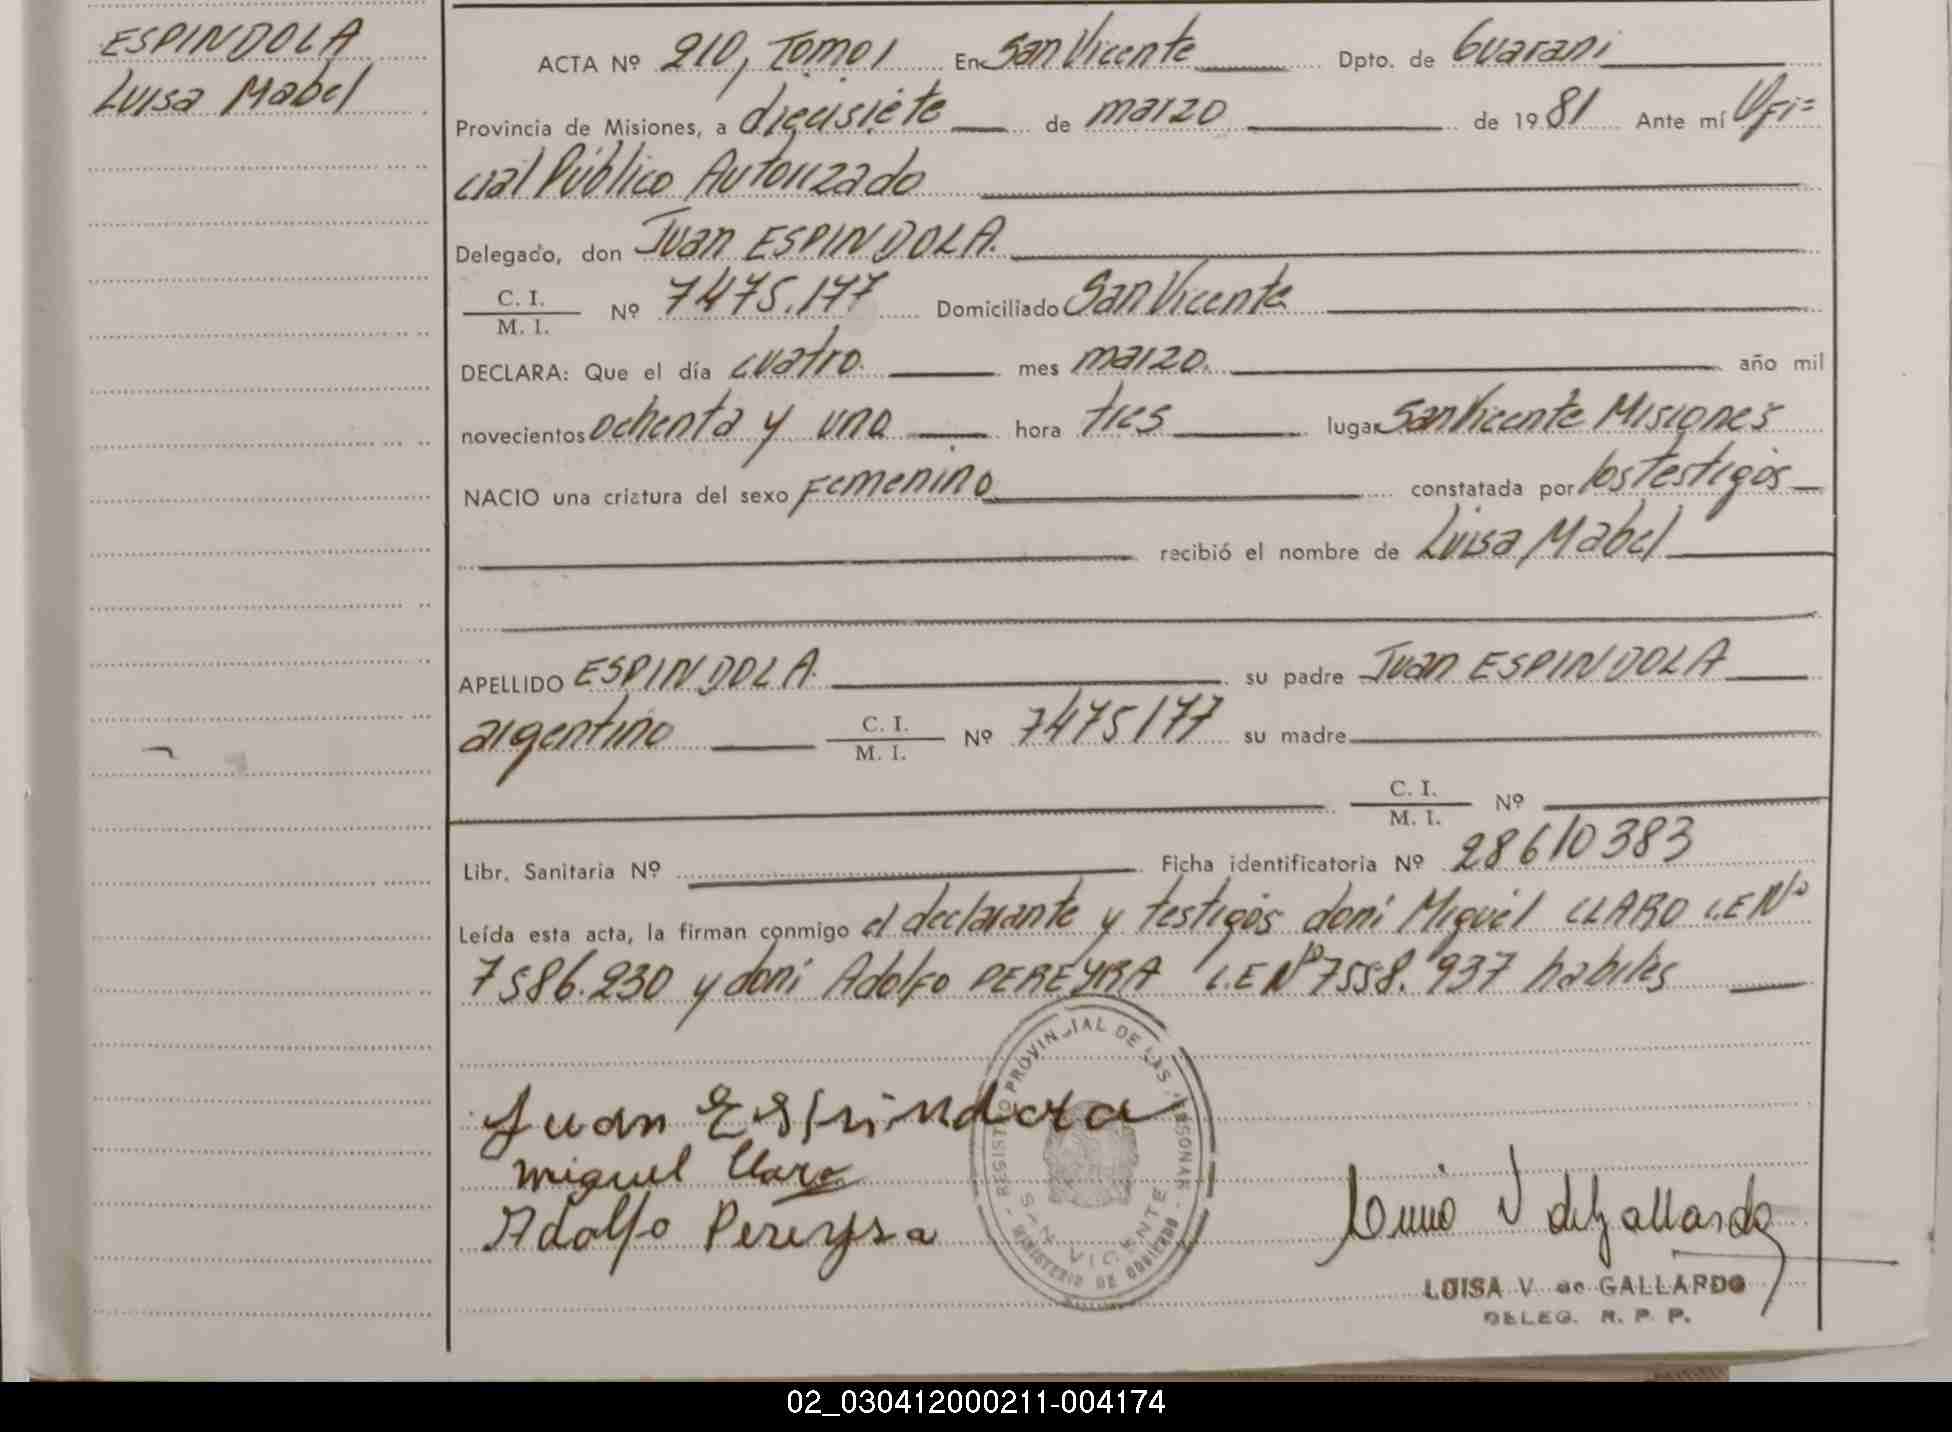 ESPINDOLA
Luisa Mabel
ACTA Nº 210, Tomo I En San Vicente Dpto. de Guarani
Provincia de Misiones, a diecisiete de marzo de 1981 Ante mí Ofi=
cial Público Autorizado
Delegado, don Juan ESPINDOLA.
C. I.
M. I. Nº 7475.177 Domiciliado San Vicente
DECLARA: Que el día cuatro. mes marzo. año mil
novecientos ochenta y uno hora tres lugar San Vicente Misiones
NACIO una criatura del sexo Femenino constatada por los testigos
recibió el nombre de Luisa Mabel
APELLIDO ESPINDOLA. su padre Juan ESPINDOLA
argentino C. I.
M. I. Nº 7475177 su madre
C. I.
M. I. Nº
Libr. Sanitaria Nº Ficha identificatoria Nº 28610383
Leída esta acta, la firman conmigo el declarante y testigos don: Miguel CLARO L.E Nº
7586.230 y don: Adolfo PEREYRA L.E Nº 7558.937 habiles
Juan Espindola
Miguel Claro
Adolfo Pereyra
REGISTRO PROVINCIAL DE LAS PERSONAS
SAN VICENTE
MINISTERIO DE GOBIERNO
V de Gallardo
LUISA V. de GALLARDO
DELEG. R. P. P.
02_030412000211-004174